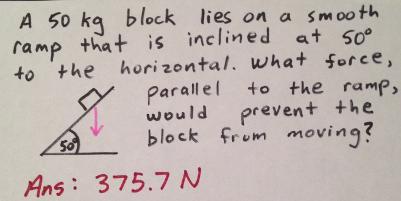 A 50 kg block lies on a smooth
ramp that is inclined at 50°
to the horizontal. What force,
parallel to the ramp,
would prevent the
block from moving?
50°
Ans: 375.7 N